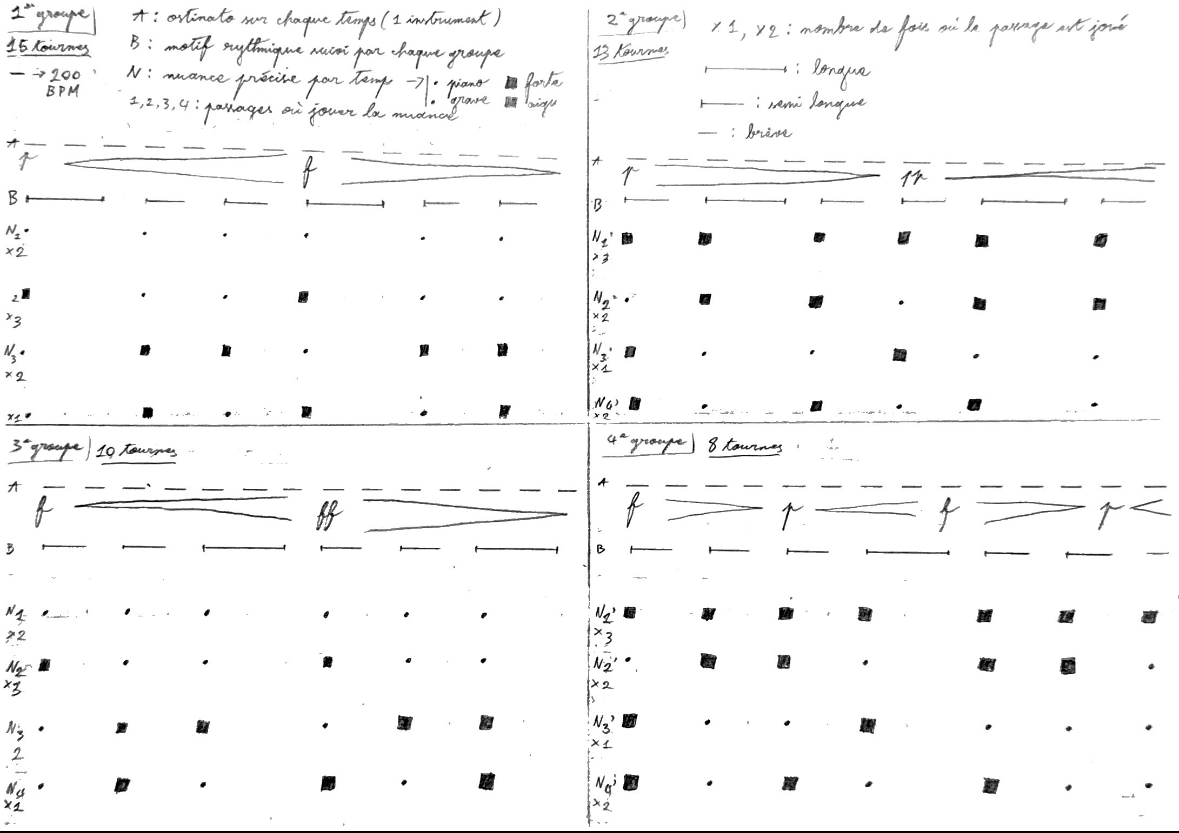 1er groupe
15 tournes
— → 200
BPM
A : ostinato sur chaque temps (1 instrument)
B : motif rythmique suivi par chaque groupe
N : nuance précise par temp → • piano ■ forte
• grave ■ aigu
1,2,3,4 : passages où jouer la nuance
A
p f
B
N1
x2
2
x3
N3
x2
x1
2e groupe
13 tournes
x1, x2 : nombre de fois où le passage est joué
: longue
: semi longue
— : brève
A
p pp
B
N1'
x3
N2'
x2
N3'
x1
N4'
x2
3e groupe 10 tournes
A
f ff
B
N1
x2
N2
x3
N3
2
N4
x1
4e groupe 8 tournes
A
f p f p
B
N1'
x3
N2'
x2
N3'
x1
N4'
x2